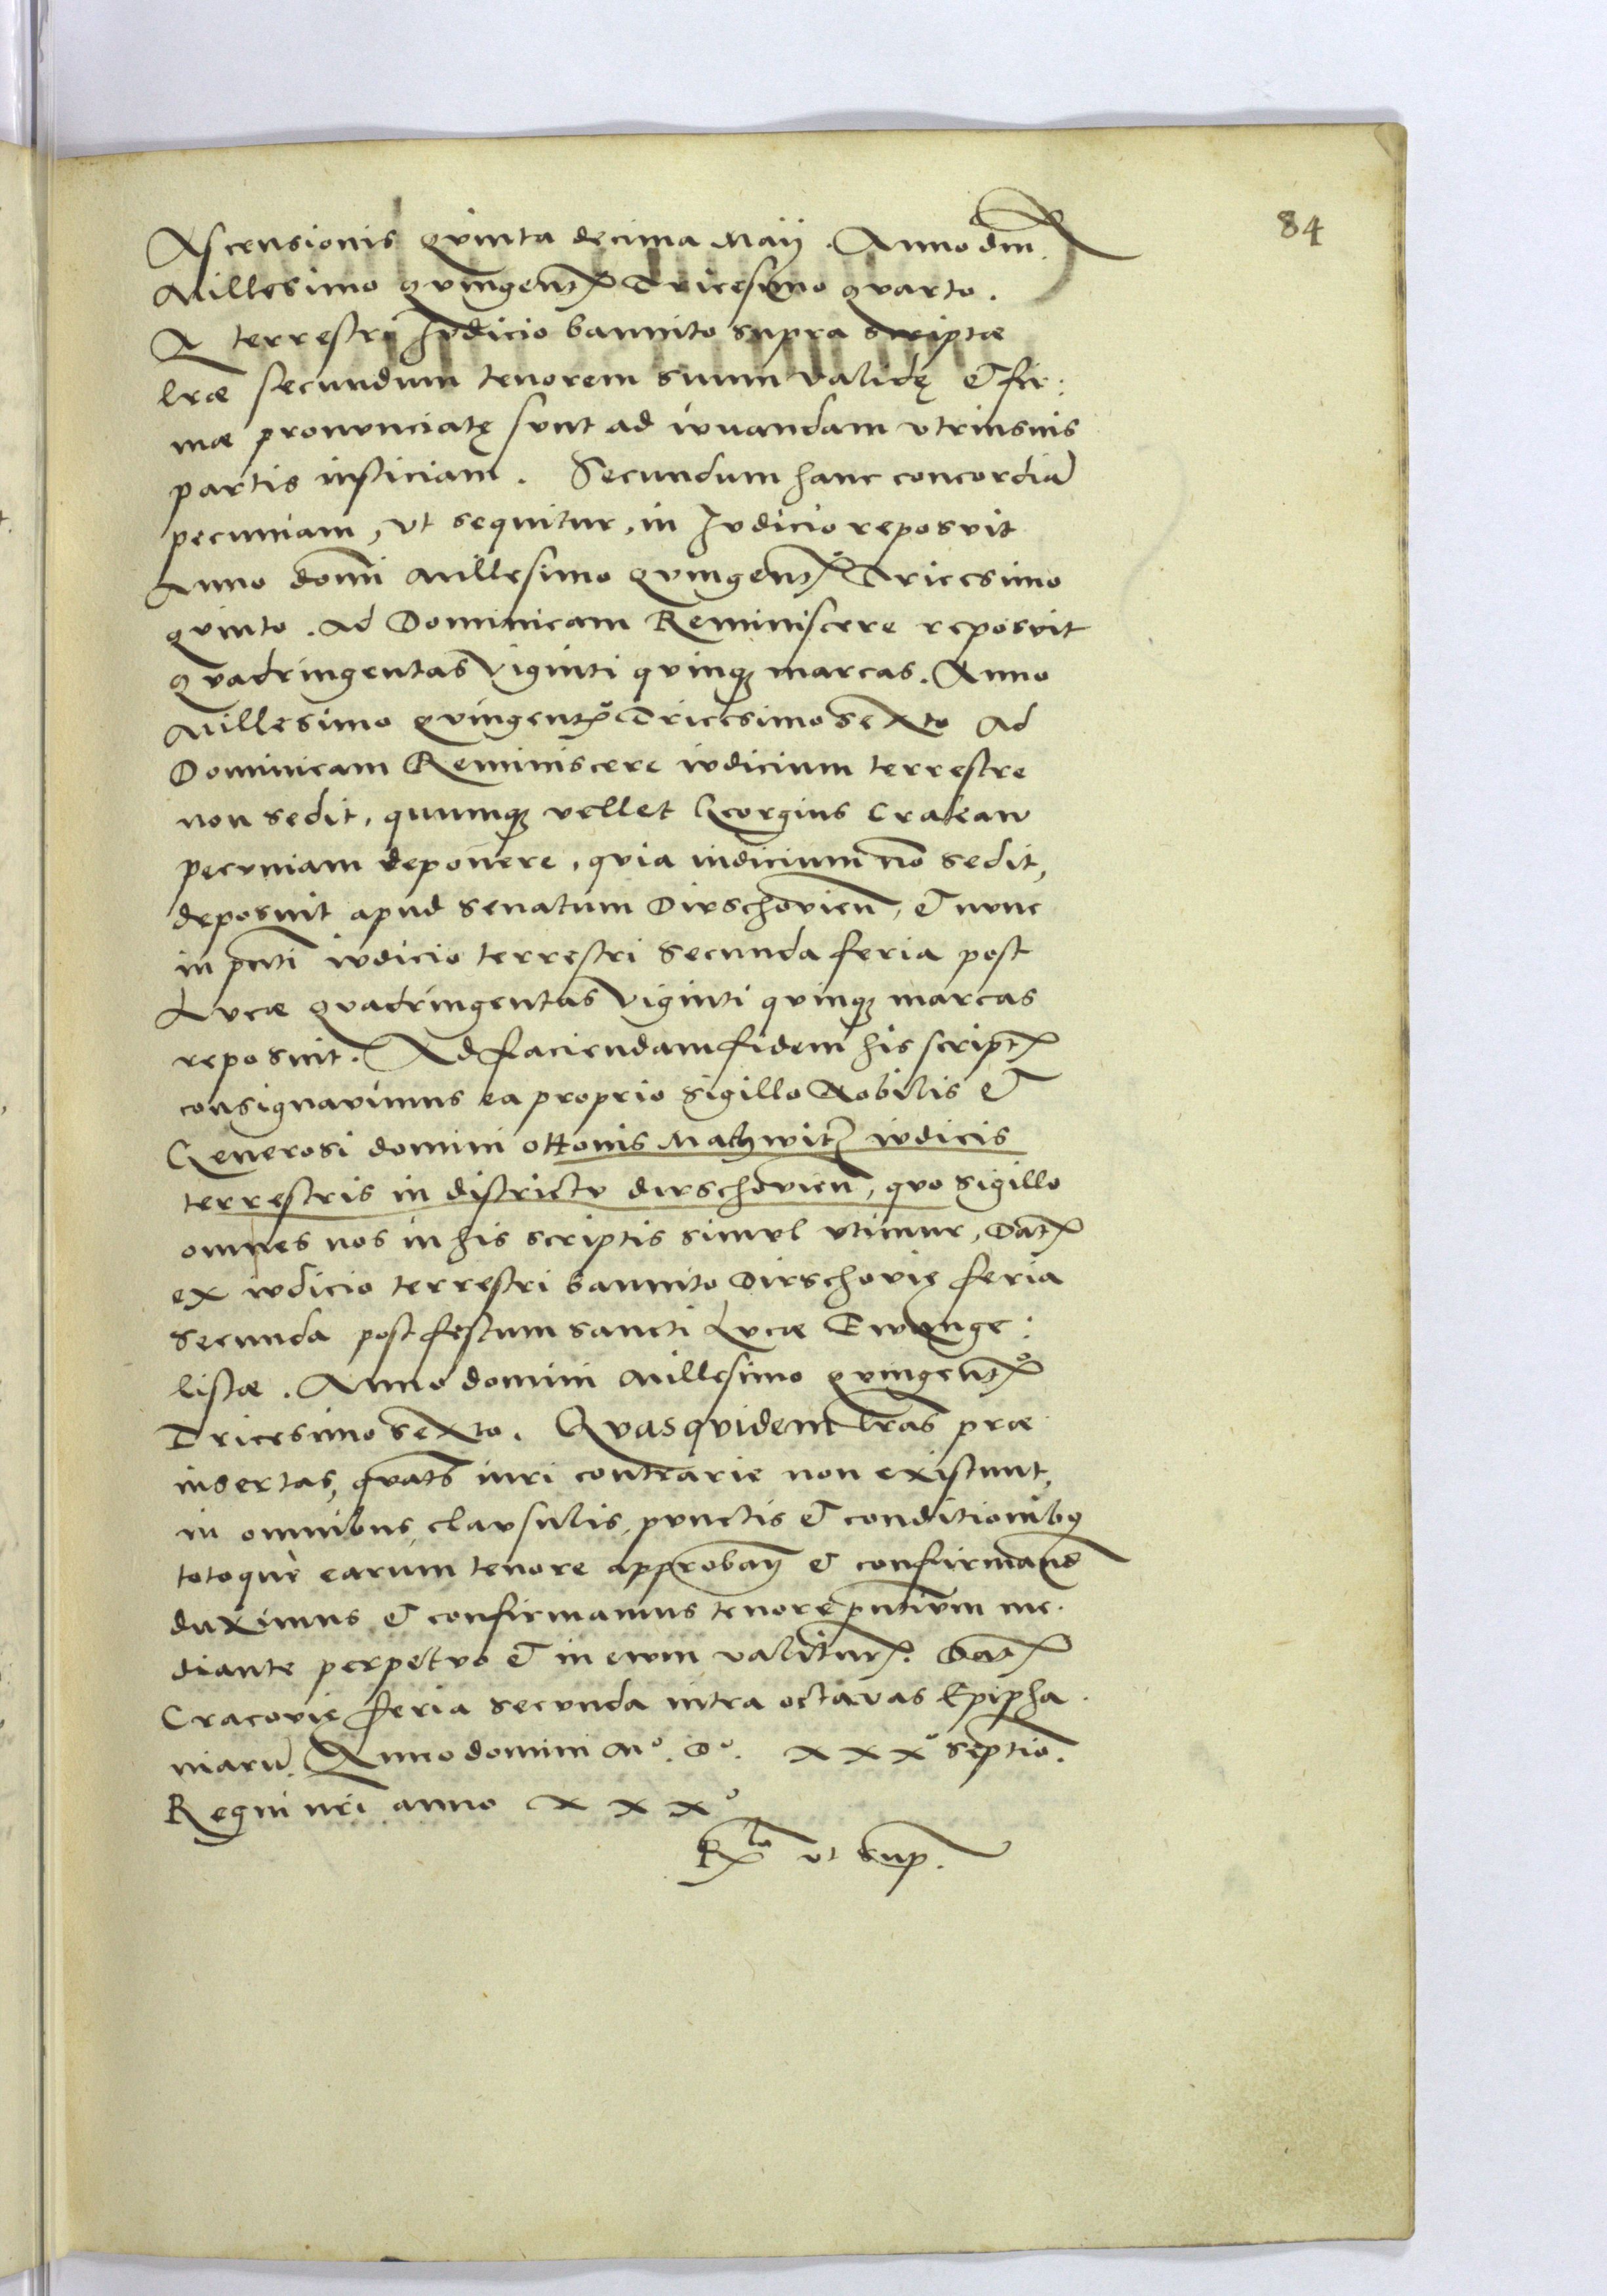 84
Ascensionis quinta decima Maij. Anno dni
Millesimo quingent° Tricesimo quarto.
A terrestri Judicio bannito supra scriptæ
lræ secundum tenorem suum validę et fir:
mæ pronunciatę sunt ad iuuandam utriusuis
partis iusticiam. Secundum hanc concordiā
pecuniam, ut sequitur, in Judicio reposuit
Anno domī Millesimo quingent° Tricesimo
quinto. Ad Dominicam Reminiscere reposuit
quadringentas viginti quinq; marcas. Anno
Millesimo quingent° Tricesimo sexto Ad
Dominicam Reminiscere iudicium terrestre
non sedit, quumq; vellet Georgius Crakaw
pecuniam deponere, quia iudicium nō sedit,
deposuit apud senatum Dirschovień, et nunc
in pn̄ti iudicio terrestri secunda feria post
Lucæ quadringentas viginti quinq; marcas
reposuit. Ad faciendam fidem his script
consignavimus ea proprio sigillo Nobilis et
Generosi domini Ottonis Machwitz iudicis
terrestris in districtu dirschovień, quo sigillo
omnes nos in his scriptis simul utimur, Dat
ex iudicio terrestri bannito Dirschovię feria
secunda post festum sancti Lucæ Ewange:
listæ. Anno domini Millesimo quingent°
Tricesimo sexto. Quasquidem lr̄as præ
insertas, quat̄s iuri contrarie non existunt,
in omnibus clausulis, punctis et conditionibq
totoque earum tenore approban̄ et confirmand̄
duximus et confirmamus tenore pn̄tium me.
diante perpetuo et in ewum valitur. Dat
Cracovię feria secunda intra octavas Epipha.
niarū. Anno domini M°. D°. xxx° septio.
Regni nr̄i anno xxx°
R^la ut sup.